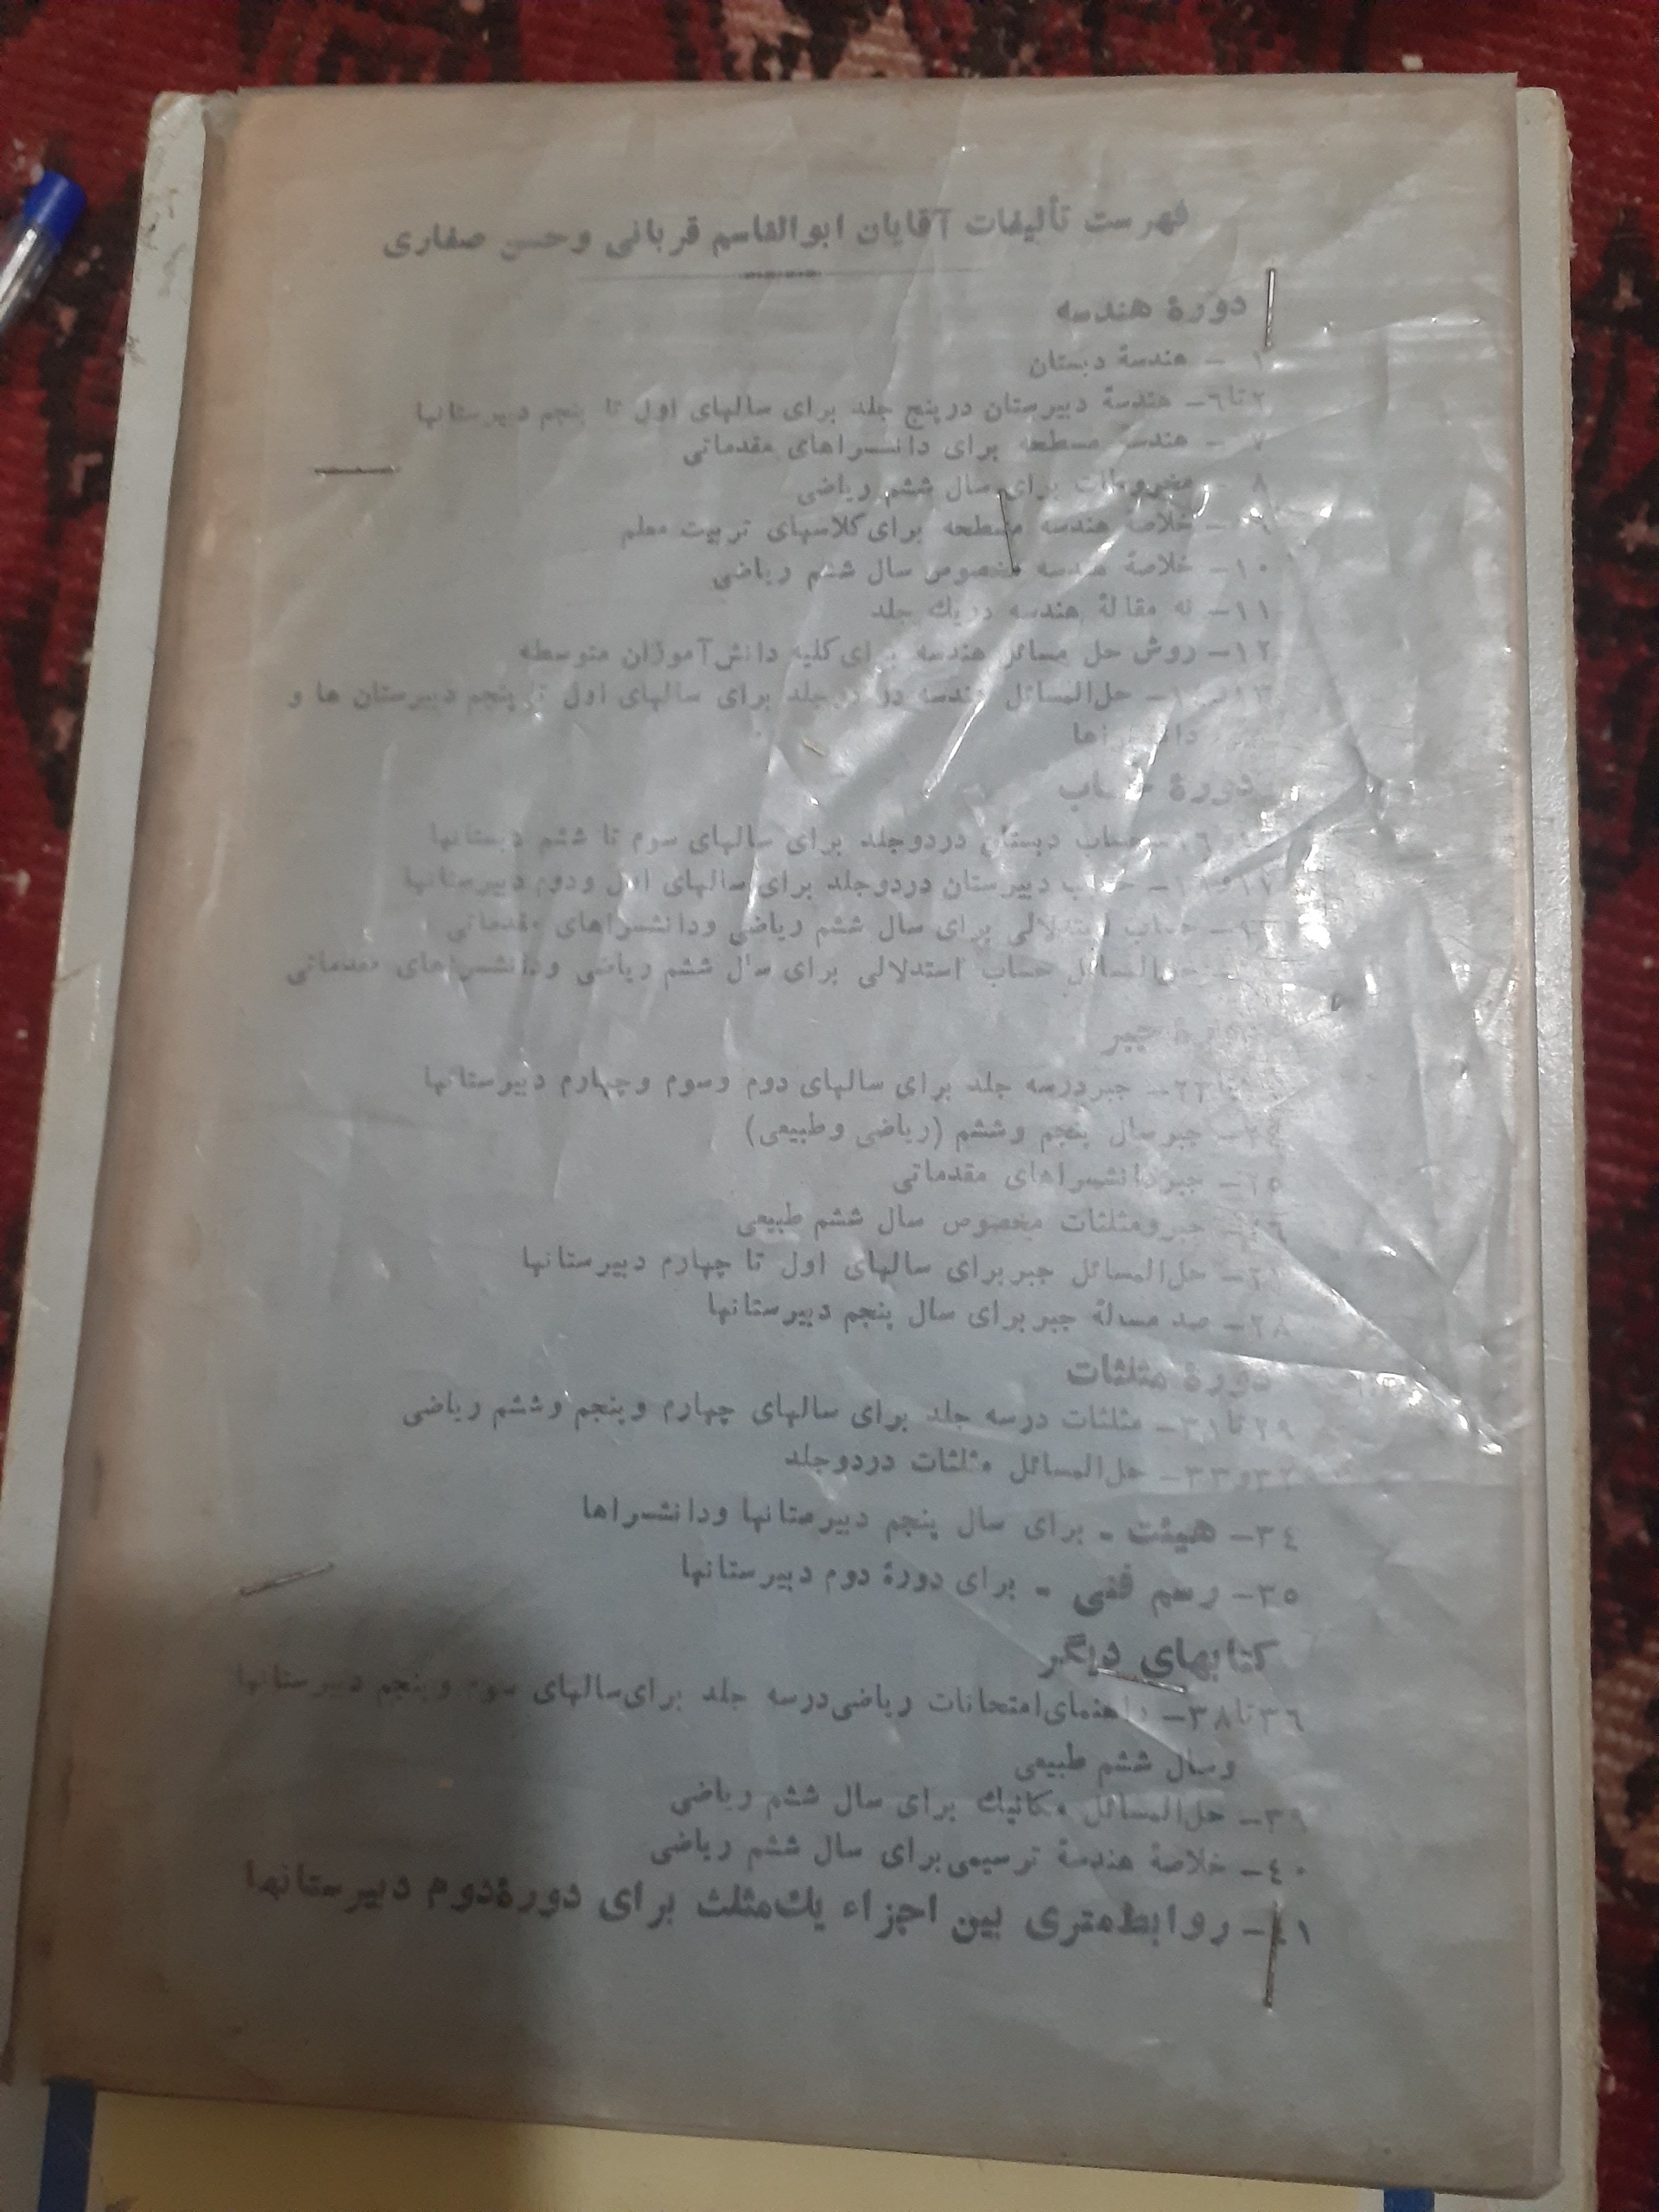 فهرست تألیفات آقایان ابوالقاسم قربانی وحسن صفاری
دورهٔ هندسه
۱ - هندسهٔ دبستان
۲تا٦- هندسهٔ دبیرستان درپنج جلد برای سالهای اول تا پنجم دبیرستانها
۷ - هندسهٔ مسطحه برای دانشسراهای مقدماتی
۸ - مخروطات برای سال ششم ریاضی
۹ - خلاصهٔ هندسه مسطحه برای کلاسهای تربیت معلم
۱۰- خلاصهٔ هندسه مخصوص سال ششم ریاضی
۱۱- نه مقالهٔ هندسه دریك جلد
۱۲- روش حل مسائل هندسه برای کلیه دانش‌آموزان متوسطه
حل‌المسائل هندسه در جلد برای سالهای اول تا پنجم دبیرستان ها و
دورهٔ حساب
حساب دبستان دردوجلد برای سالهای سوم تا ششم دبستانها
۱۷و۱۸- حساب دبیرستان دردوجلد برای سالهای اول ودوم دبیرستانها
حساب استدلالی برای سال ششم ریاضی ودانشسراهای مقدماتی
حل‌المسائل حساب استدلالی برای سال ششم ریاضی ودانشسراهای مقدماتی
دورهٔ جبر
تا۲۳- جبردرسه جلد برای سالهای دوم وسوم وچهارم دبیرستانها
۲٤- جبرسال پنجم وششم (ریاضی وطبیعی)
۲٥- جبردانشسراهای مقدماتی
۲٦- جبرومثلثات مخصوص سال ششم طبیعی
۲۷- حل‌المسائل جبربرای سالهای اول تا چهارم دبیرستانها
۲۸- صد مسألهٔ جبربرای سال پنجم دبیرستانها
دورهٔ مثلثات
۲۹تا۳۱- مثلثات درسه جلد برای سالهای چهارم وپنجم وششم ریاضی
۳۲و۳۳- حل‌المسائل مثلثات دردوجلد
۳٤- هیئت - برای سال پنجم دبیرستانها ودانشسراها
۳٥- رسم فنی - برای دورهٔ دوم دبیرستانها
کتابهای دیگر
۳٦تا۳۸- راهنمای‌امتحانات ریاضی‌درسه جلد برای‌سالهای سوم وپنجم دبیرستانها
وسال ششم طبیعی
۳۹- حل‌المسائل مکانیك برای سال ششم ریاضی
٤۰- خلاصهٔ هندسهٔ ترسیمی‌برای سال ششم ریاضی
٤۱- روابط‌متری بین اجزاء یك‌مثلث برای دورهٔ‌دوم دبیرستانها